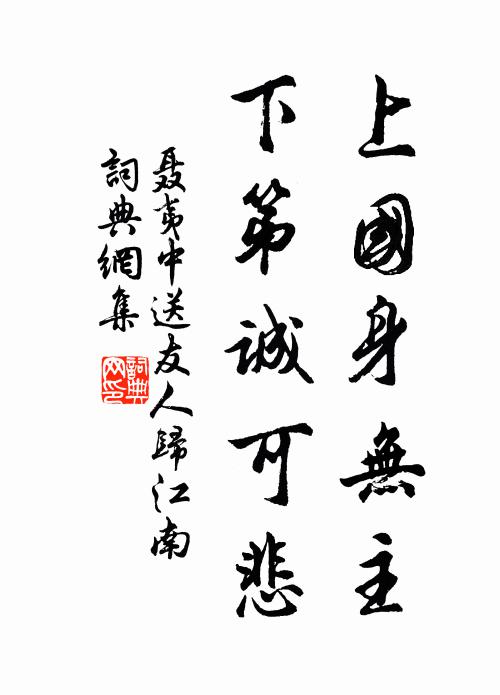 上國身無主
下第誠可悲
聶夷中送友人歸江南
詞典網集
詞典網印